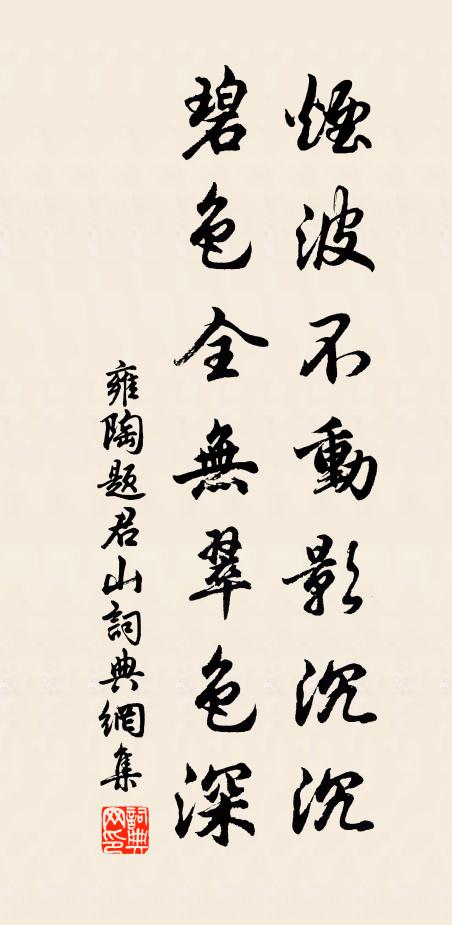 煙波不動影沉沉
碧色全無翠色深
雍陶題君山詞典網集
詞典網印